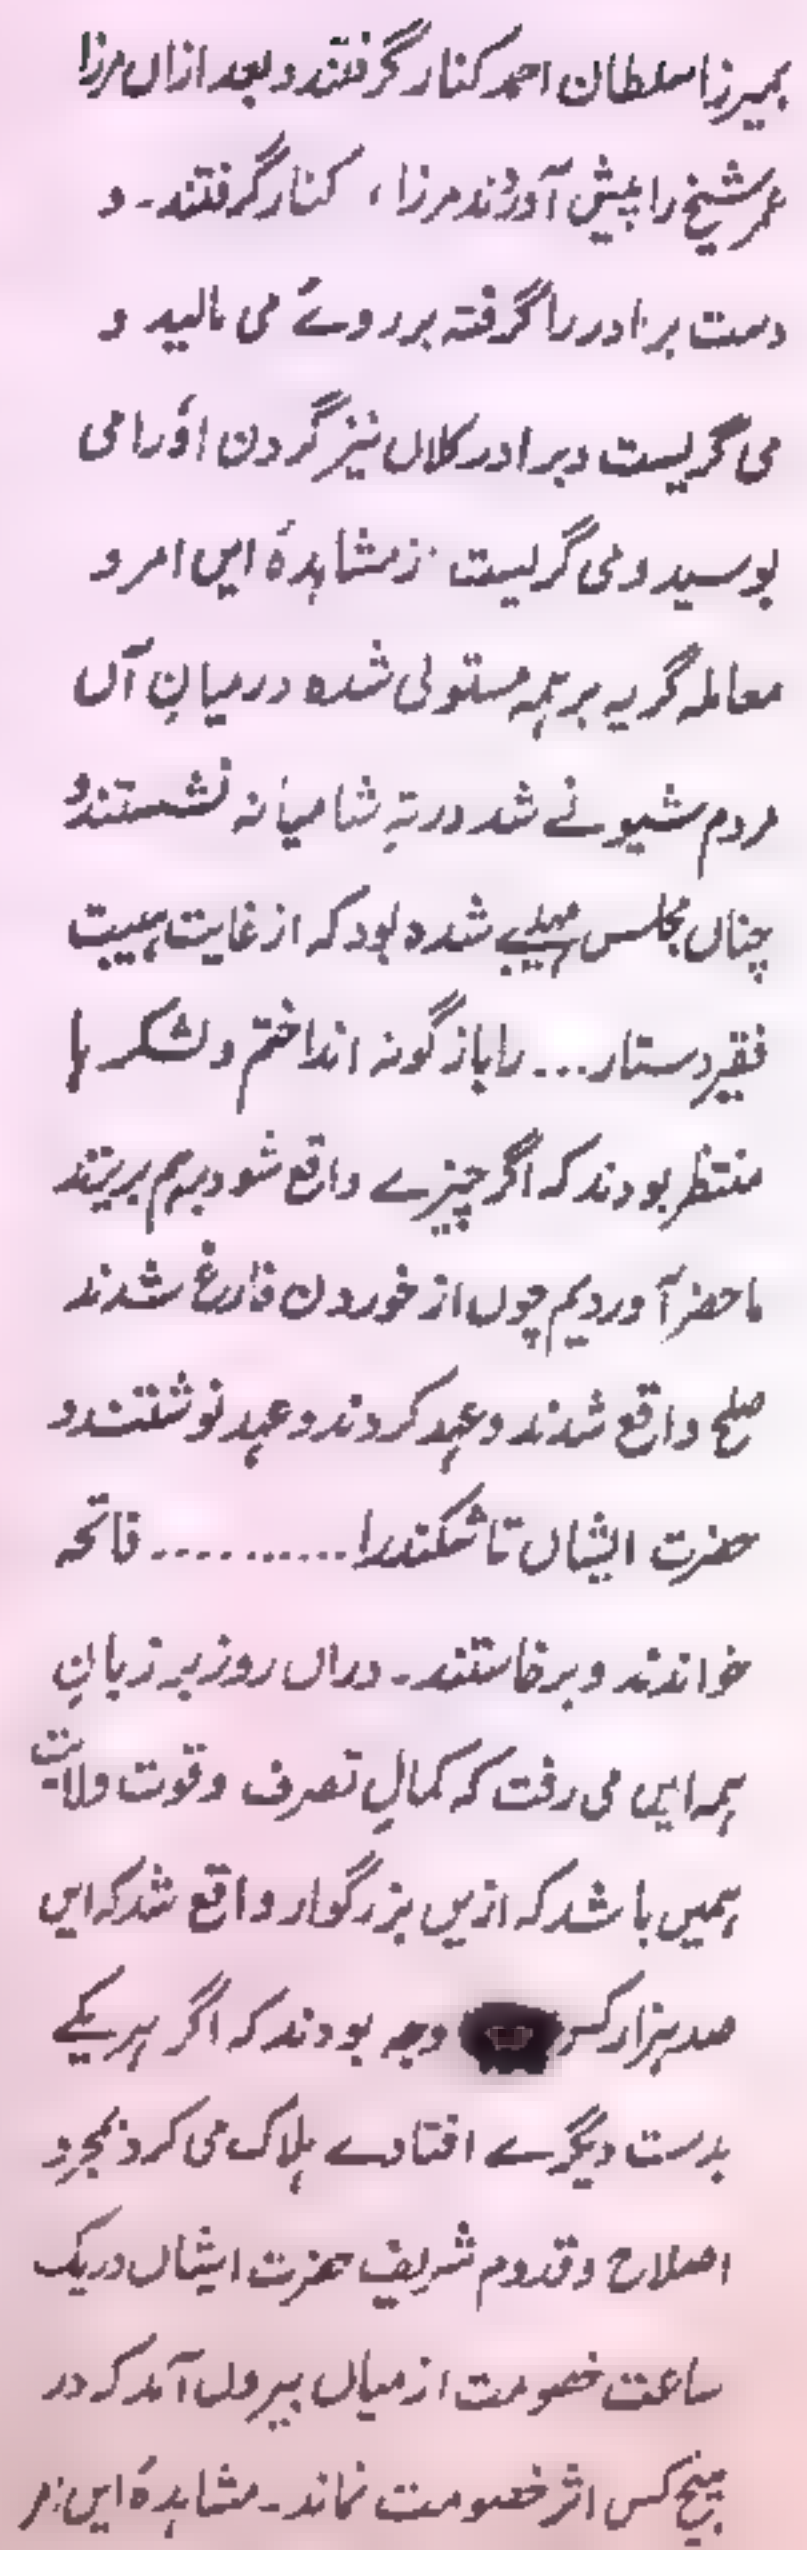 بمیرزا سلطان احمد کنار گرفتند و بعد ازاں مرزا
عمر شیخ را پیش آوردُند مرزا، کنار گرفتند۔ و
دست برادر را گرفتہ بر روئے می مالید و
می گریست و برادر کلاں نیز گردن اوُرا می
بوسید و می گریست زمشاہدۂ ایں امر و
معاملہ گریہ بر ہمہ مستولی شدہ درمیانِ آں
مردم شیونے شد در تہِ شامیانہ نشستند و
چناں مجلس مہیبے شدہ بود کہ از غایت ہیبت
فقیر دستار... را باز گونہ انداختم و لشکر ہا
منتظر بودند کہ اگر چیزے واقع شود برہم بریزند
ماحضر آوردیم چوں از خوردن فارغ شدند
صلح واقع شدند و عہد کردند و عہد نوشتند و
حضرت ایشاں تاشکند را .......... فاتحہ
خواندند و برخاستند۔ دراں روز بر زبانِ
ہمہ ایں می رفت کہ کمالِ تصرف و قوت ولایت
ہمیں باشد کہ ازیں بزرگوار واقع شد کہ ایں
صد ہزار کس وجہ بودند کہ اگر ہریکے
بدست دیگرے افتادے ہلاک می کرد بمجردِ
اصلاح و قدوم شریف حضرت ایشاں دریک
ساعت خصومت از میاں بیروں آمد کہ در
ہیچ کس اثر خصومت نماند۔ مشاہدۂ ایں